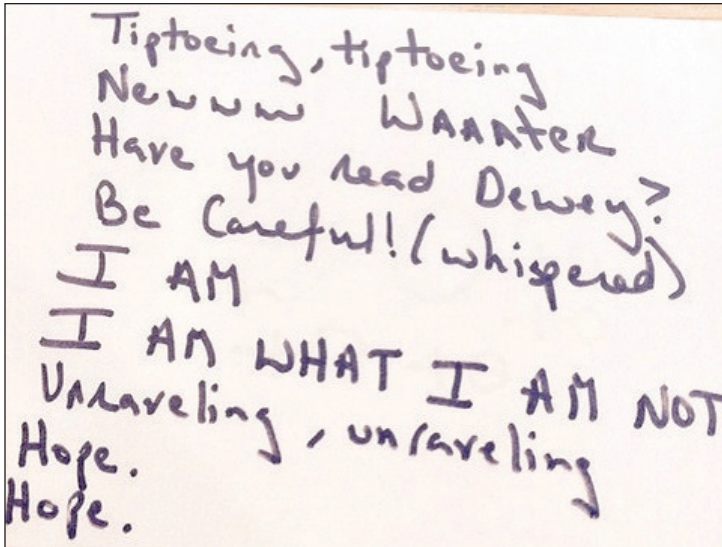 Tiptoeing, tiptoeing
Newww WAAATER
Have you read Dewey?
Be Careful! (whispered)
I AM
I AM WHAT I AM NOT
Unraveling, unraveling
Hope.
Hope.